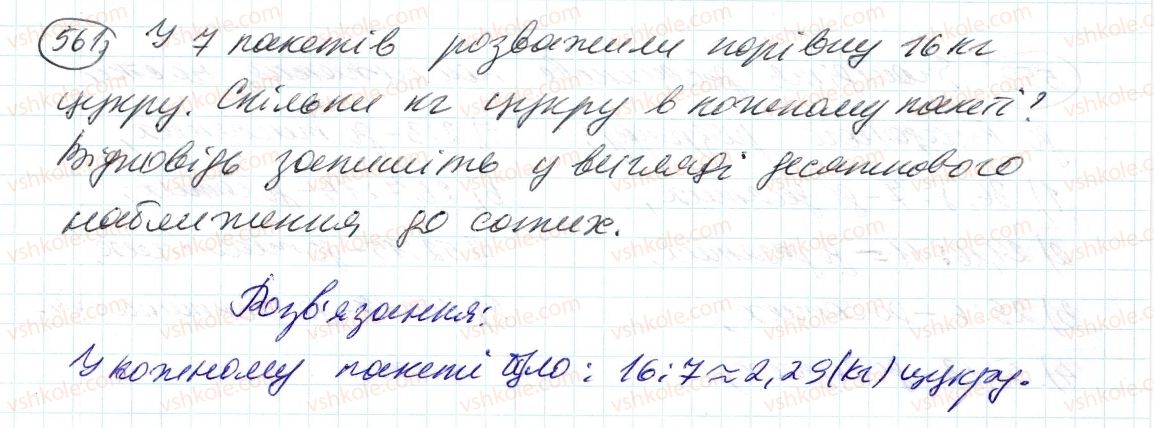 561) У 7 пакетів розважили порівну 16 кг
цукру. Скільки кг цукру в кожному пакеті?
Відповідь запишіть у вигляді десяткового
наближення до сотих.
Розв'язання:
У кожному пакеті було: 16:7≈2,29(кг) цукру.